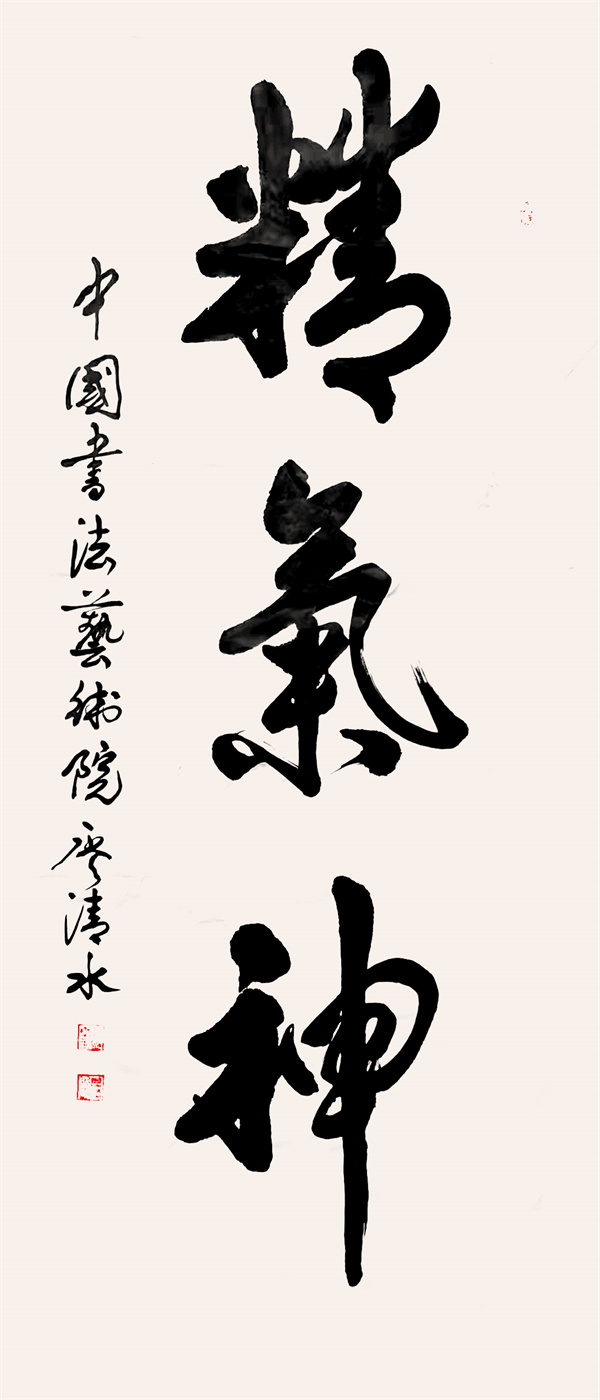 精氣神
中國書法藝術院廖清水